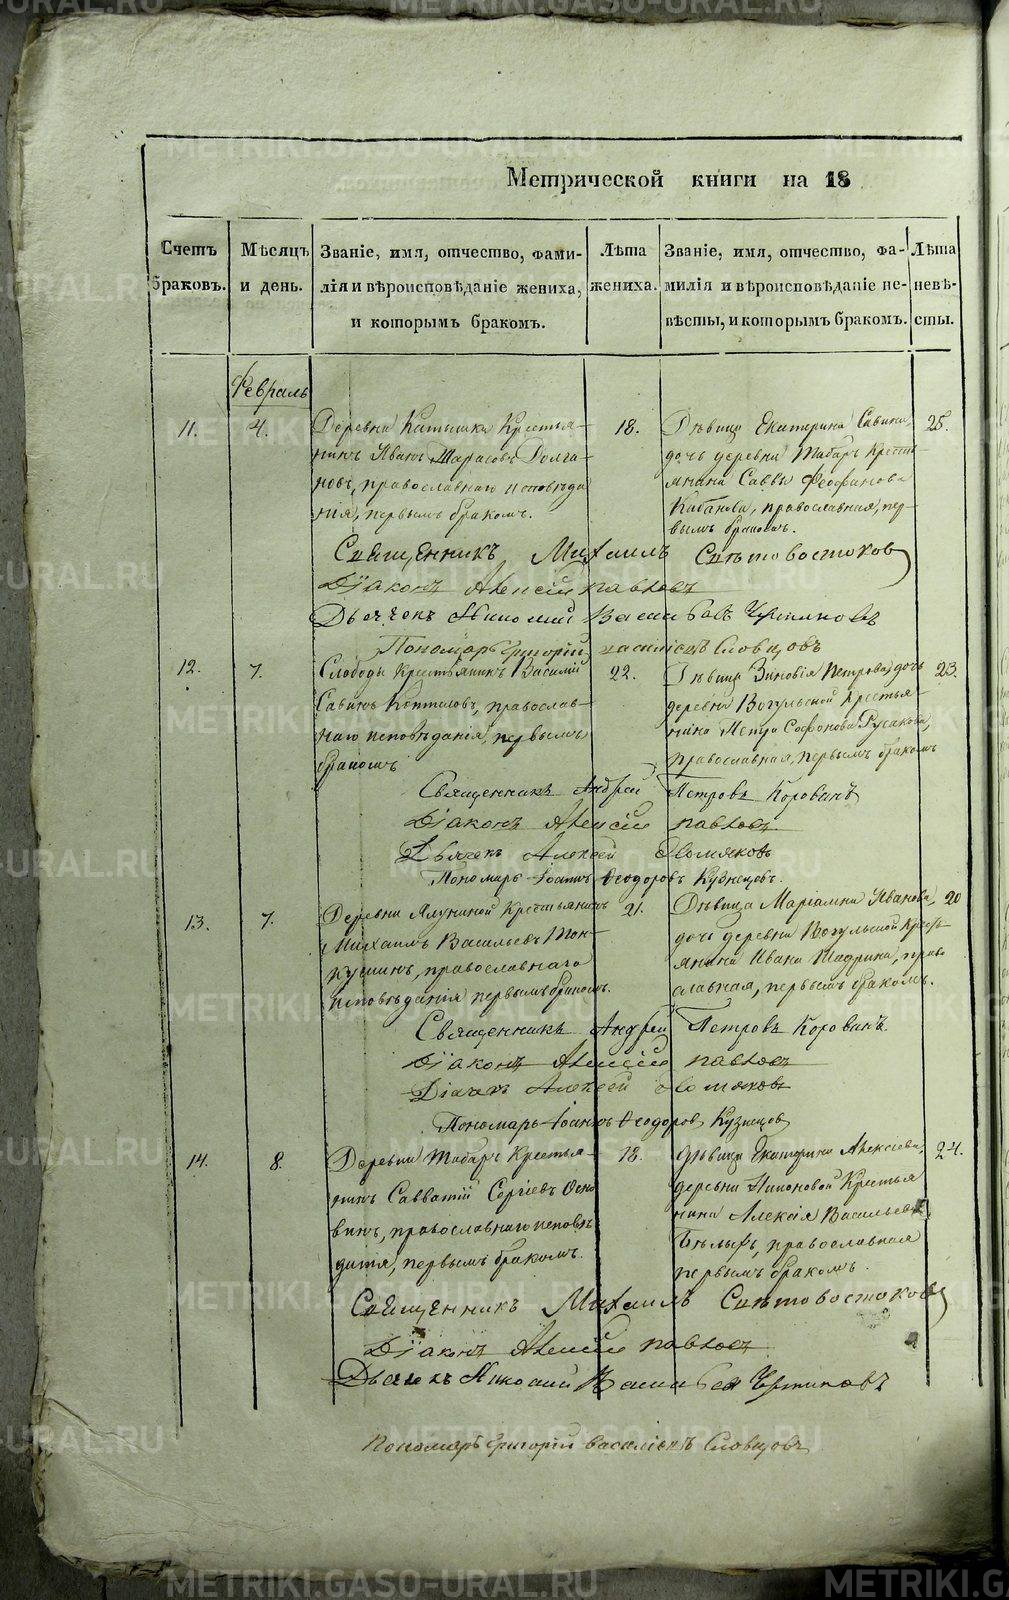 Метрической книги на 18
Счетъ браковъ.
Мѣсяцъ и день.
Званіе, имя, отчество, фами-
лія и вѣроисповѣданіе жениха,
и которымъ бракомъ.
Лѣта жениха.
Званіе, имя, отчество, фа-
милія и вѣроисповѣданіе не-
вѣсты, и которымъ бракомъ.
Лѣта невѣ-
сты.
Февраль
11.
4.
Деревни Катышка Крестья-
нинъ Иванъ Тарасовъ Долга-
новъ, православнаго исповѣда
нія, первымъ бракомъ.
18.
Дѣвица Екатерина Савина,
дочь деревни Табаръ Крестья
янина Саввы Феофанова
Кабанова, православная, пер-
вымъ бракомъ.
25.
Священникъ Михаилъ Свѣтовостоков
Діаконъ Алексій Павловъ
Дьячекъ Николай Васильевъ
Пономарь Григорій Василіевъ Словцовъ
12.
7.
Слободы Крестьянинъ Василій
Савинъ, православ-
наго исповѣданія, первымъ
бракомъ
22.
Дѣвица Зиновія Петрова, дочь
деревни Вогульской Крестья-
нина Петра Софонова Русакова,
православная, первымъ бракомъ
23.
Священникъ Андрей Петровъ Корованъ
Діаконъ Алексій Павловъ.
Дьячекъ Алексей Хомяковъ
Пономарь Іоаннъ Феодоровъ Кузнецовъ.
13.
7.
Деревни Крестьянинъ
Михаилъ Васильевъ
православнаго
исповѣданія первымъ бракомъ.
21.
Дѣвица Маріамна Иванова,
дочь деревни Вогульской Кресть-
янина Ивана Шадрина, прав-
славная, первымъ бракомъ.
20
Священникъ Андрей Петровъ Корованъ
Діаконъ Алексій Павловъ
Діачекъ Алексей Хомяковъ
Пономарь Іоаннъ Феодоров Кузнецов
14.
8.
Деревни Табаръ Крестья-
нинъ Савватій Сергіевъ Осно
винъ, православнаго исповѣ
данія, первымъ бракомъ.
18.
Дѣвица Екатерина Алексіева,
деревни Крестья
нина Алексія Васильева
Бѣлыхъ, православная
первымъ бракомъ.
24.
Священникъ Михаилъ Свѣтовостоков
Діаконъ Алексій Павловъ
Дьячекъ Николай Васильев
Пономарь Григорій Василіевъ Словцовъ
METRIKI.GASO-URAL.RU